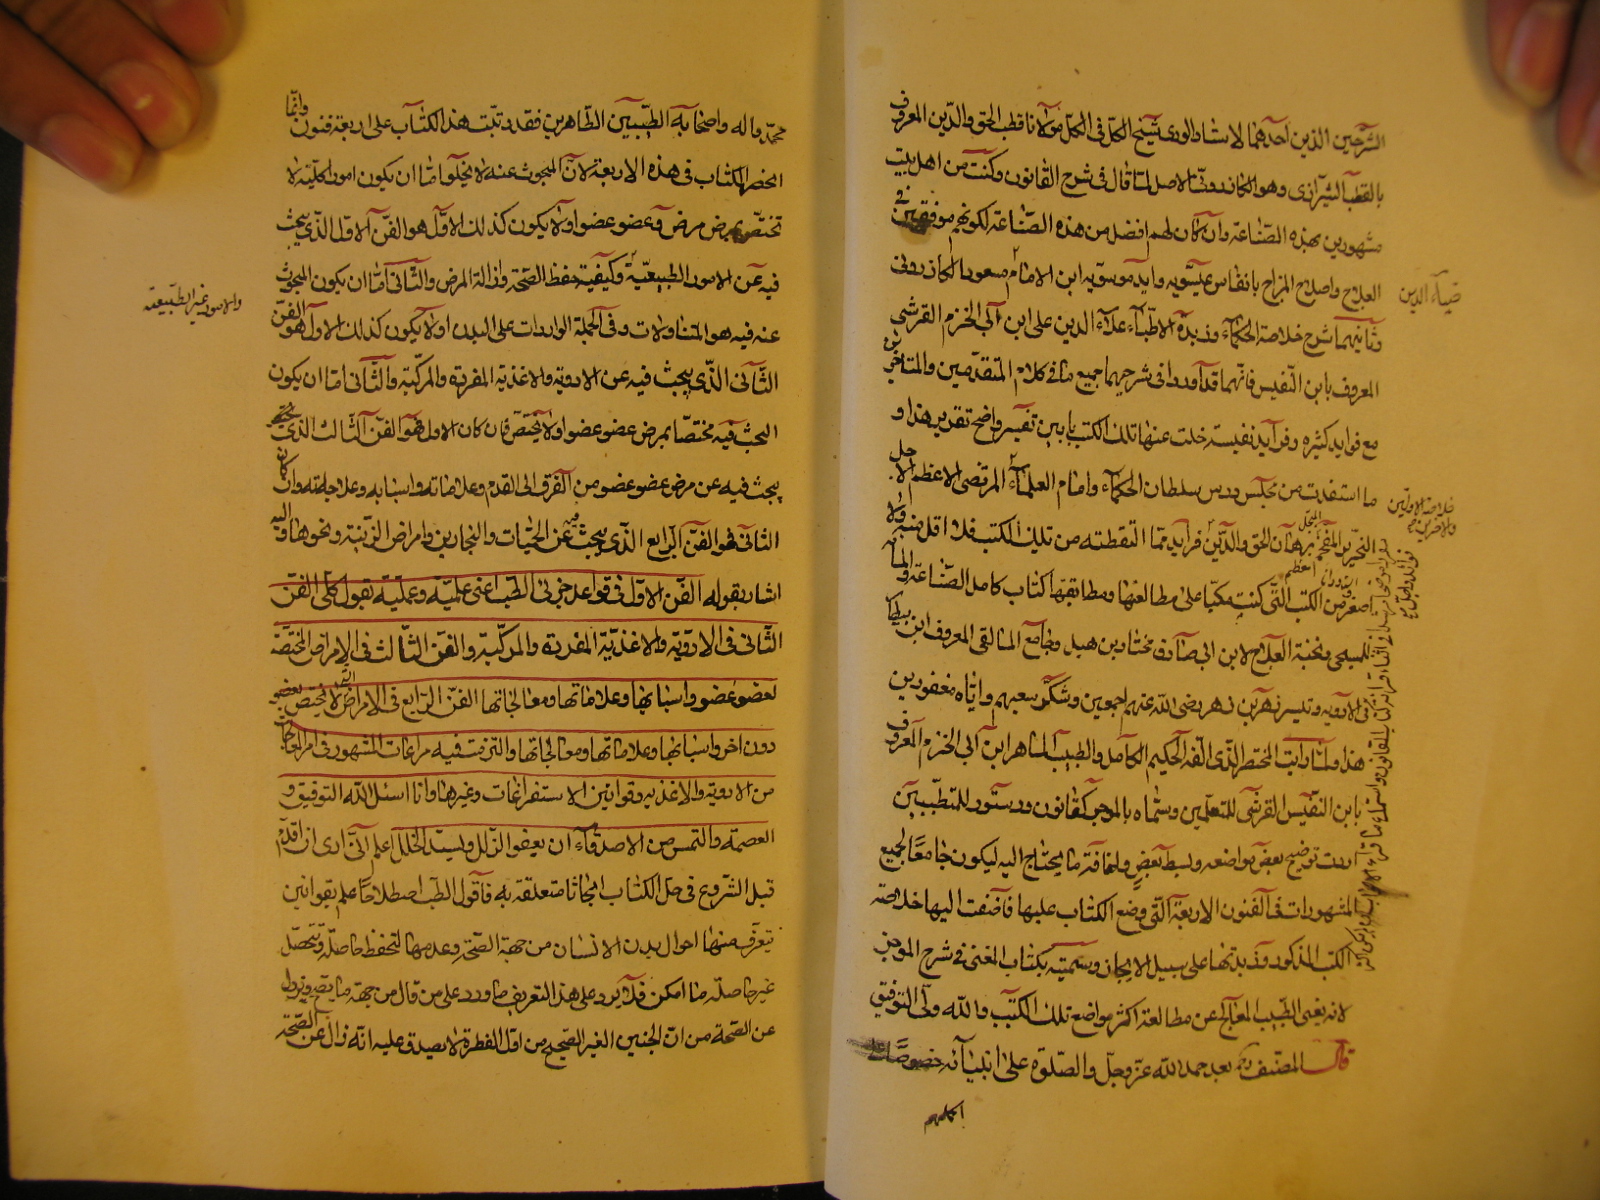 الشرحين الذين احدهما لاستاد الورى شيخ الكل فى الكل مولانا قطب الحق والدين المعروف
بالقطب الشيرازى وهو الكازرونى الاصل لما قال فى شرح القانون وكنت من اهل بيت
مشهورين بهذه الصناعة وان كان لهم افضل من هذه الصناعة لكونهم موفقين فى
العلاج واصلاح المزاج بانفاس عيسويه وايد موسويه ابن الامام مسعود الكازرونى
ضياء الدين
وثانيهما شرح خلاصة الحكماء وزبدة الاطباء علاء الدين على ابن ابى الحزم القرشى
المعروف بابن النفيس فانهما قد اوردا فى شرحيهما جميع ما فى كلام المتقدمين والمتاخرين
مع فوايد كثيره وفرايد نفيسة خلت عنها تلك الكتب بابين تفسير واضح تقرير هذا و
ما استفدت من مجلس درس سلطان الحكماء وامام العلماء المرتضى الاعظم الاجل
خلاصة الاولين والاخرين
النحرير المفخم برهان الحق والدين فرايد مما التقطته من تلك الكتب فلا اقل منه ولا
اصغر من الكتب التى كنت مكبا على مطالعتها ومطابقتها كتاب كامل الصناعة والمائه
للمسيحى ونخبة العلاج لابن ابى صادق ومختار بن هبل وجامع المالقى المعروف ابن بيطار
فى الادويه وتيسير زهر بن زهر رضى الله عنهم اجمعين وشكر سعيهم واياه مغفورين
هذا ولما رايت المختصر الذى الفه الحكيم الكامل والطبيب الماهر ابن ابى الحزم المعروف
بابن النفيس القرشى للمتعلمين وسماه بالموجز كقانون ودستور للمتطببين
اردت توضيح بعض مواضعه وبسط بعض واضافة ما يحتاج اليه ليكون جامعا لجميع
المشهورات فى الفنون الاربعة التى وضع الكتاب عليها فاضفت اليها خلاصة
الكتب المذكور وزبدتها على سبيل الايجاز وسميته بكتاب المغنى فى شرح الموجز
لانه يغنى الطبيب المعالج عن مطالعة اكثر مواضع تلك الكتب والله ولى التوفيق
قال المصنف بعد حمد الله عز وجل والصلوة على انبيائه خصوصا على
اكملهم
محمد واله واصحابه الطيبين الطاهرين فقد رتبت هذا الكتاب على اربعة فنون وانما
انحصر الكتاب فى هذه الاربعة لان المبحوث عنه لا يخلو اما ان يكون امورا كلية لا
تختص بمرض مرض وعضو عضو اولا يكون كذلك الاول هو الفن الاول الذى يبحث
فيه عن الامور الطبيعيه وكيفية حفظ الصحة وازالة المرض والثانى اما ان يكون المبحوث
والامور غير الطبيعية
عنه فيه هو المتناولات وفى الجملة الواردات على البدن اولا يكون كذلك الاول هو الفن
الثانى الذى يبحث فيه عن الادويه والاغذية المفردة والمركبة والثانى اما ان يكون
البحث فيه مختصا بمرض عضو عضو اولا يختص فان كان الاول فهو الفن الثالث الذى
يبحث فيه عن مرض عضو عضو من الفرق الى القدم وعلاماته واسبابه وعلاجاته وان كان
الثانى فهو الفن الرابع الذى يبحث فيه عن الحميات والبحارين وامراض الزينة ونحوها واليه
اشار بقوله الفن الاول فى قواعد جزئى الطب اعنى علمية وعملية بقول كلى الفن
الثانى فى الادوية والاغذية المفردة والمركبة والفن الثالث فى الامراض المختصة
بعضو عضو واسبابها وعلاماتها ومعالجاتها الفن الرابع فى الامراض التى لا تختص بعضو
دون اخر واسبابها وعلاماتها ومعالجاتها والتزمت فيه مراعات المشهور فى امر المعالجات
من الادوية والاغذيه وقوانين الاستفراغات وغيرها وانا اسئل الله التوفيق و
العصمة والتمس من الاصدقاء ان يعفو الزلل ويسد الخلل اعلم انى ارى ان اقدم
قبل الشروع فى حل الكتاب ابحاثا متعلقة به فاقول الطب اصطلاحا علم بقوانين
تيعرف منها احوال بدن الانسان من جهة الصحة وعدمها لتحفظ حاصلة وتحصل
غير حاصلة ما امكن فلا يرد على هذا التعريف ما ورد على من قال من جهة ما يصح ويزول
عن الصحة من ان الجنين الغير الصحيح من اول الفطرة لا يصدق عليه انه زال عن الصحة